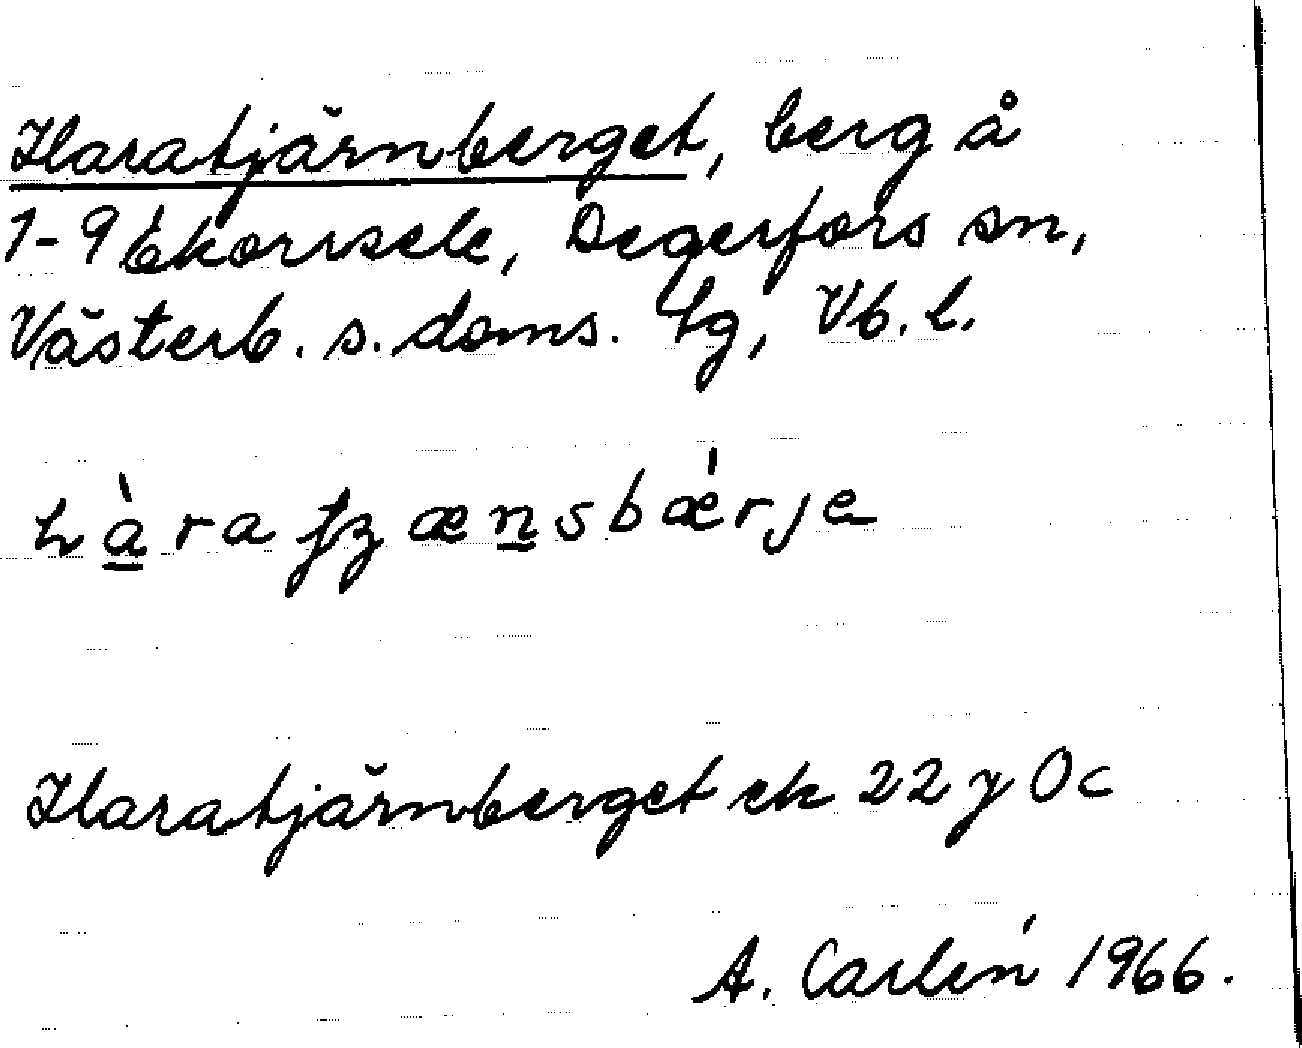 Haratjärnberget, berg å
1-9 Ekorrsele, Degerfors sn,
Västerb. s. doms. lg, Vb. l.
hàraʃʒænsbǽrje
Haratjärnberget ek 22 y 0c
A. Carlén 1966.